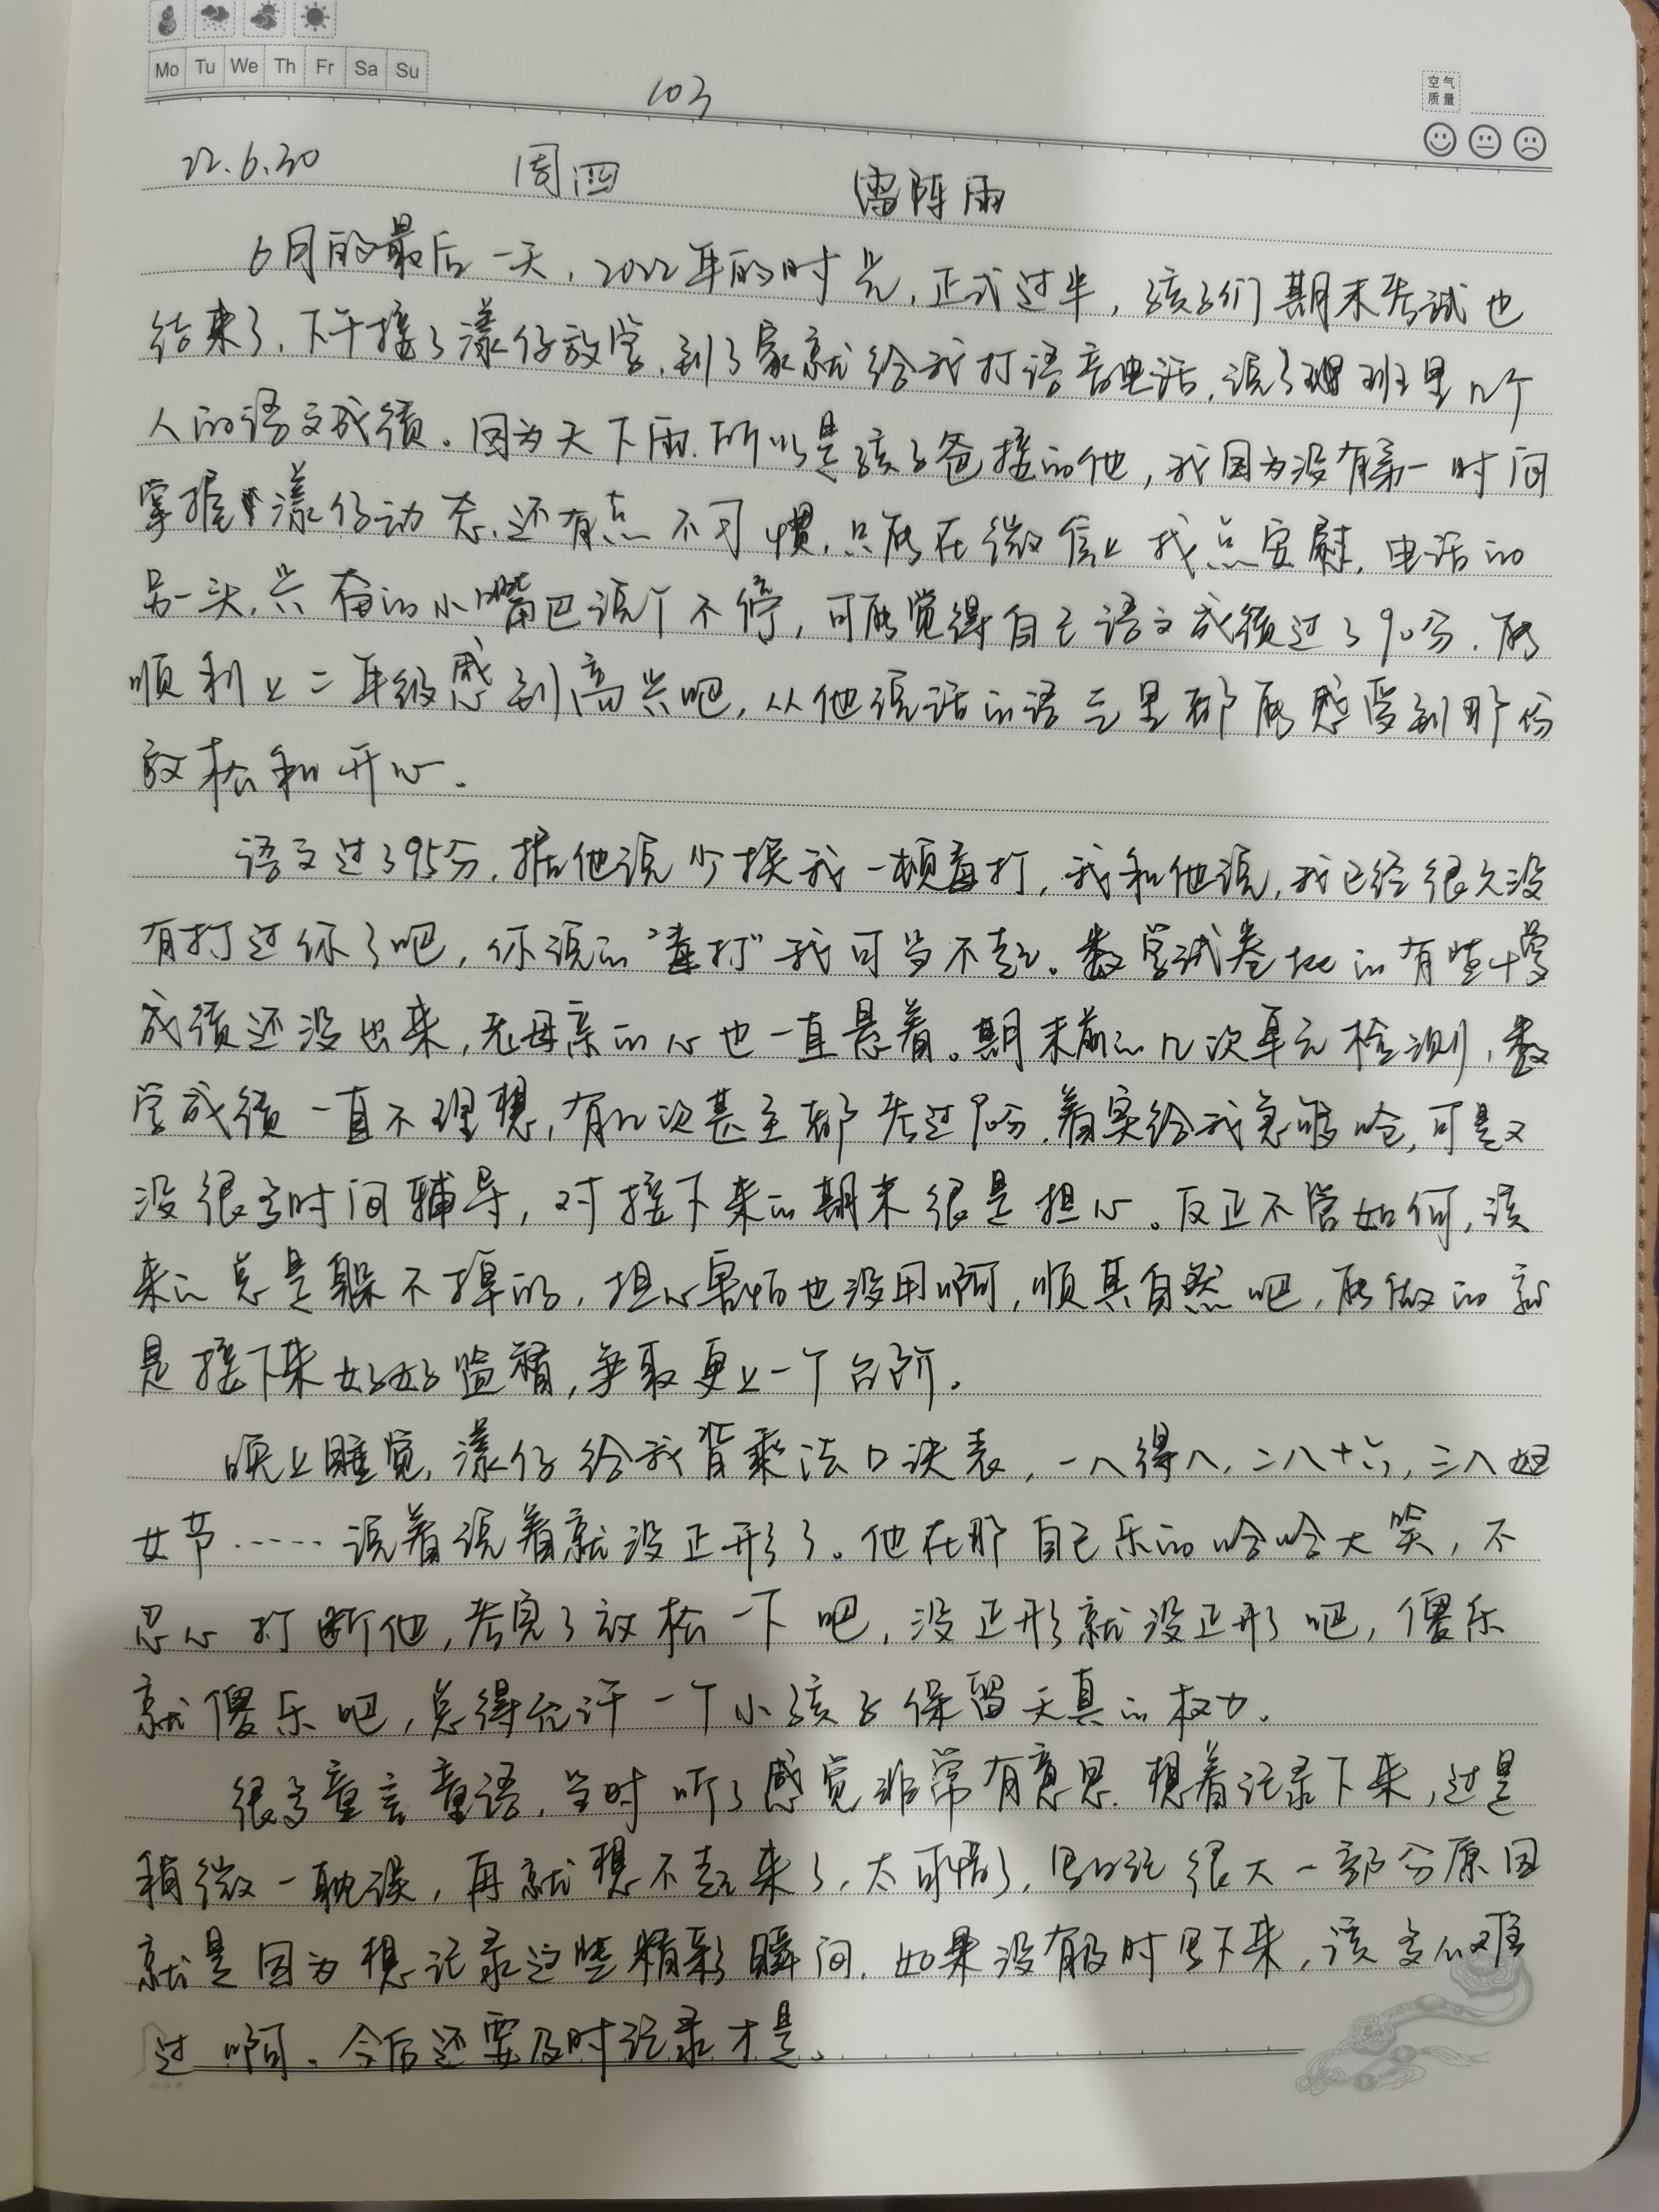 Mo Tu We Th Fr Sa Su
103
空气
质量
22.6.30 周四 雷阵雨
6月的最后一天，2022年的时光，正式过半，孩子们期末考试也
结束了，下午接了漾仔放学，到了家就给我打语音电话，说了班里几个
人的语文成绩。因为天下雨，所以是孩子爸接的他，我因为没有第一时间
掌握漾仔动态，还有点不习惯，只能在微信上找点安慰，电话的
另一头，兴奋的小嘴巴说个不停，可能觉得自己语文成绩过了90分，能
顺利上二年级感到高兴吧，从他说话的语气里都能感受到那份
放松和开心。
语文过了95分，据他说少挨我一顿毒打，我和他说，我已经很久没
有打过你了吧，你说的“毒打”我可当不起。数学试卷批的有些慢
成绩还没出来，老母亲的心也一直悬着。期末前的几次单元检测，数
学成绩一直不理想，有几次甚至都考过90分，着实给我急够呛，可是又
没很多时间辅导，对接下来的期末很是担心。反正不管如何，该
来的总是躲不掉的，担心害怕也没用啊，顺其自然吧，能做的就
是接下来好好监督，争取更上一个台阶。
晚上睡觉，漾仔给我背乘法口诀表，一八得八，二八十六，三八妇
女节……说着说着就没正形了。他在那自己乐的哈哈大笑，不
忍心打断他，考完了放松一下吧，没正形就没正形吧，傻乐
就傻乐吧，总得允许一个小孩子保留天真的权力。
很多童言童语，当时听了感觉非常有意思，想着记录下来，过是
稍微一耽误，再就想不起来了，太可惜了，写日记很大一部分原因
就是因为想记录这些精彩瞬间，如果没有及时写下来，该多么难
过啊。今后还要及时记录才是。